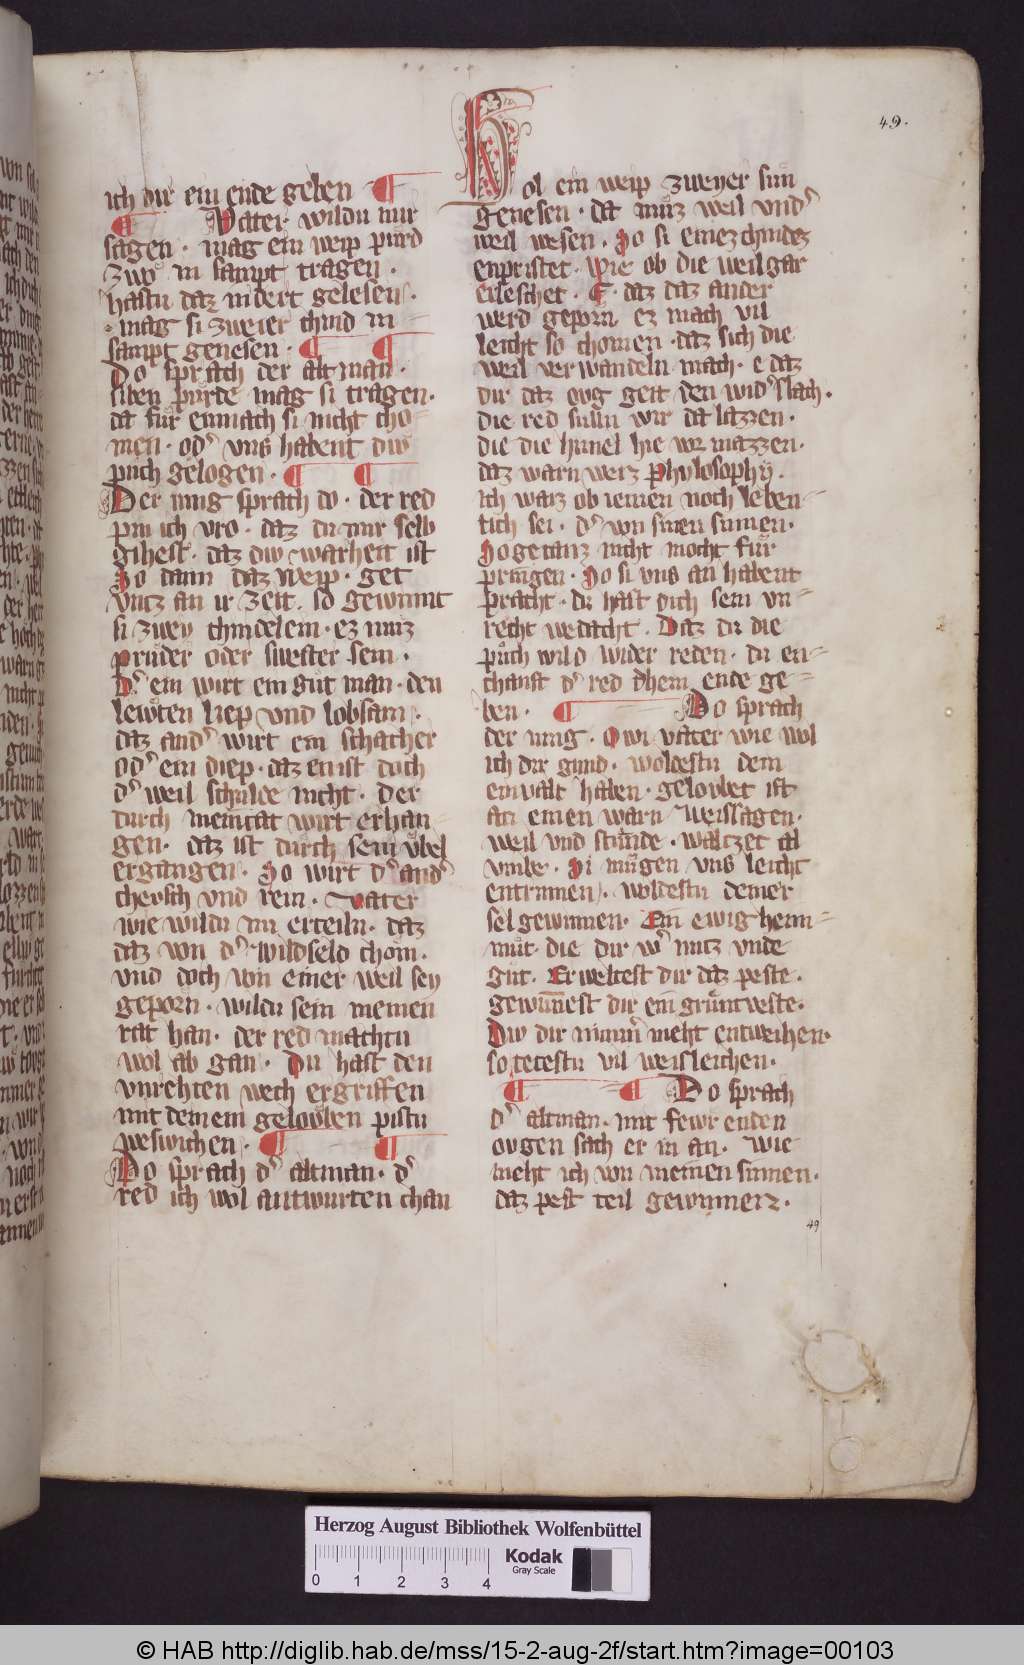 49.
ich dir ein ende geben ¶
¶ Vater wildu mir
sagen · mag ein weip purd
zwo in sampt tragen ·
hastu daz indert gelesen ·
· mag si zweier chind in-
sampt genesen · ¶ ¶
Do sprach der altman ·
siben pürde mag si tragen ·
da für enmach si nicht cho-
men · od' vns habent diw
puch gelogen · ¶ ¶
Der iung sprach do · der red
pin ich vro · daz du mir selb
gihest · daz diw warheit ist
So dann daz weip · get
vntz an ir zeit · so gewinnt
si zwey chindelein · ez muz
prüder oder swester sein ·
D' ein wirt ein güt man · den
lewten liep vnd lobsam ·
daz and' wirt ein schacher
od' ein diep · daz enist doch
d' weil schulde nicht · Der
durch meintat wirt erhan-
gen · daz ist durch sein vbel
ergangen · So wirt d' and'
chersch vnd rein · Vater
wie wildu mi erteiln · daz
daz von d' wildseld chom ·
vnd doch von einer weil sey
geporn · wildu sein meinen
rat han · der red machtu
wol ab gan · Du hast den
vnrehten wech ergriffen
mit deinem gelouben pistu
peswichen · ¶ ¶
Do sprach d' altman · d'
red ich wol antwurten chan
Hol ein weip zweyer sun
genesen · da muz weil vnd'
weil wesen · So si einez chindez
enpristet · Wie ob die weil gar
erleschet · ¶ · daz daz ander
werd geporn ez mach vil
leicht so chomen · daz sich die
weil verwandeln mach · e daz
dir daz oug geit den wid'slach ·
die red suln wir da lazzen ·
die die himel hie vor mazzen ·
daz warn weiz Phylosophy ·
ich waiz ob iemen noch leben-
tich sei · d' von sinen sinnen ·
So getanz nicht mocht für
pringen · So si vns an habent
pracht · du hast dich sein vn-
recht wedacht · Daz du die
püch wild wider reden · du en-
chanst d' red dhein ende ge-
ben · ¶ Do sprach
der iung · Owi vater wie wol
ich dir gund · woldestu dem
einvalt haben · geloubet ist
an einen warn weissagen ·
weil vnd stunde · waltzet al
vmbe · Si mügen vns leicht
entrinnen · woldestu deiner
sel gewinnen · Ein ewig heim-
müt · die dir w' nutz vnde
güt · Erweltest dir daz peste ·
gewunnest dir ein gruntveste ·
Diw dir nimm' meht entweihen ·
so tetestu vil weisleichen ·
¶ ¶ Do sprach
d' altman · mit fewr enden
ovgen sach er in an · Wie
meht ich von meinen sinnen ·
daz pest teil gewinnen ·
49
Herzog August Bibliothek Wolfenbüttel
0 1 2 3 4
Kodak
Gray Scale
© HAB http://diglib.hab.de/mss/15-2-aug-2f/start.htm?image=00103